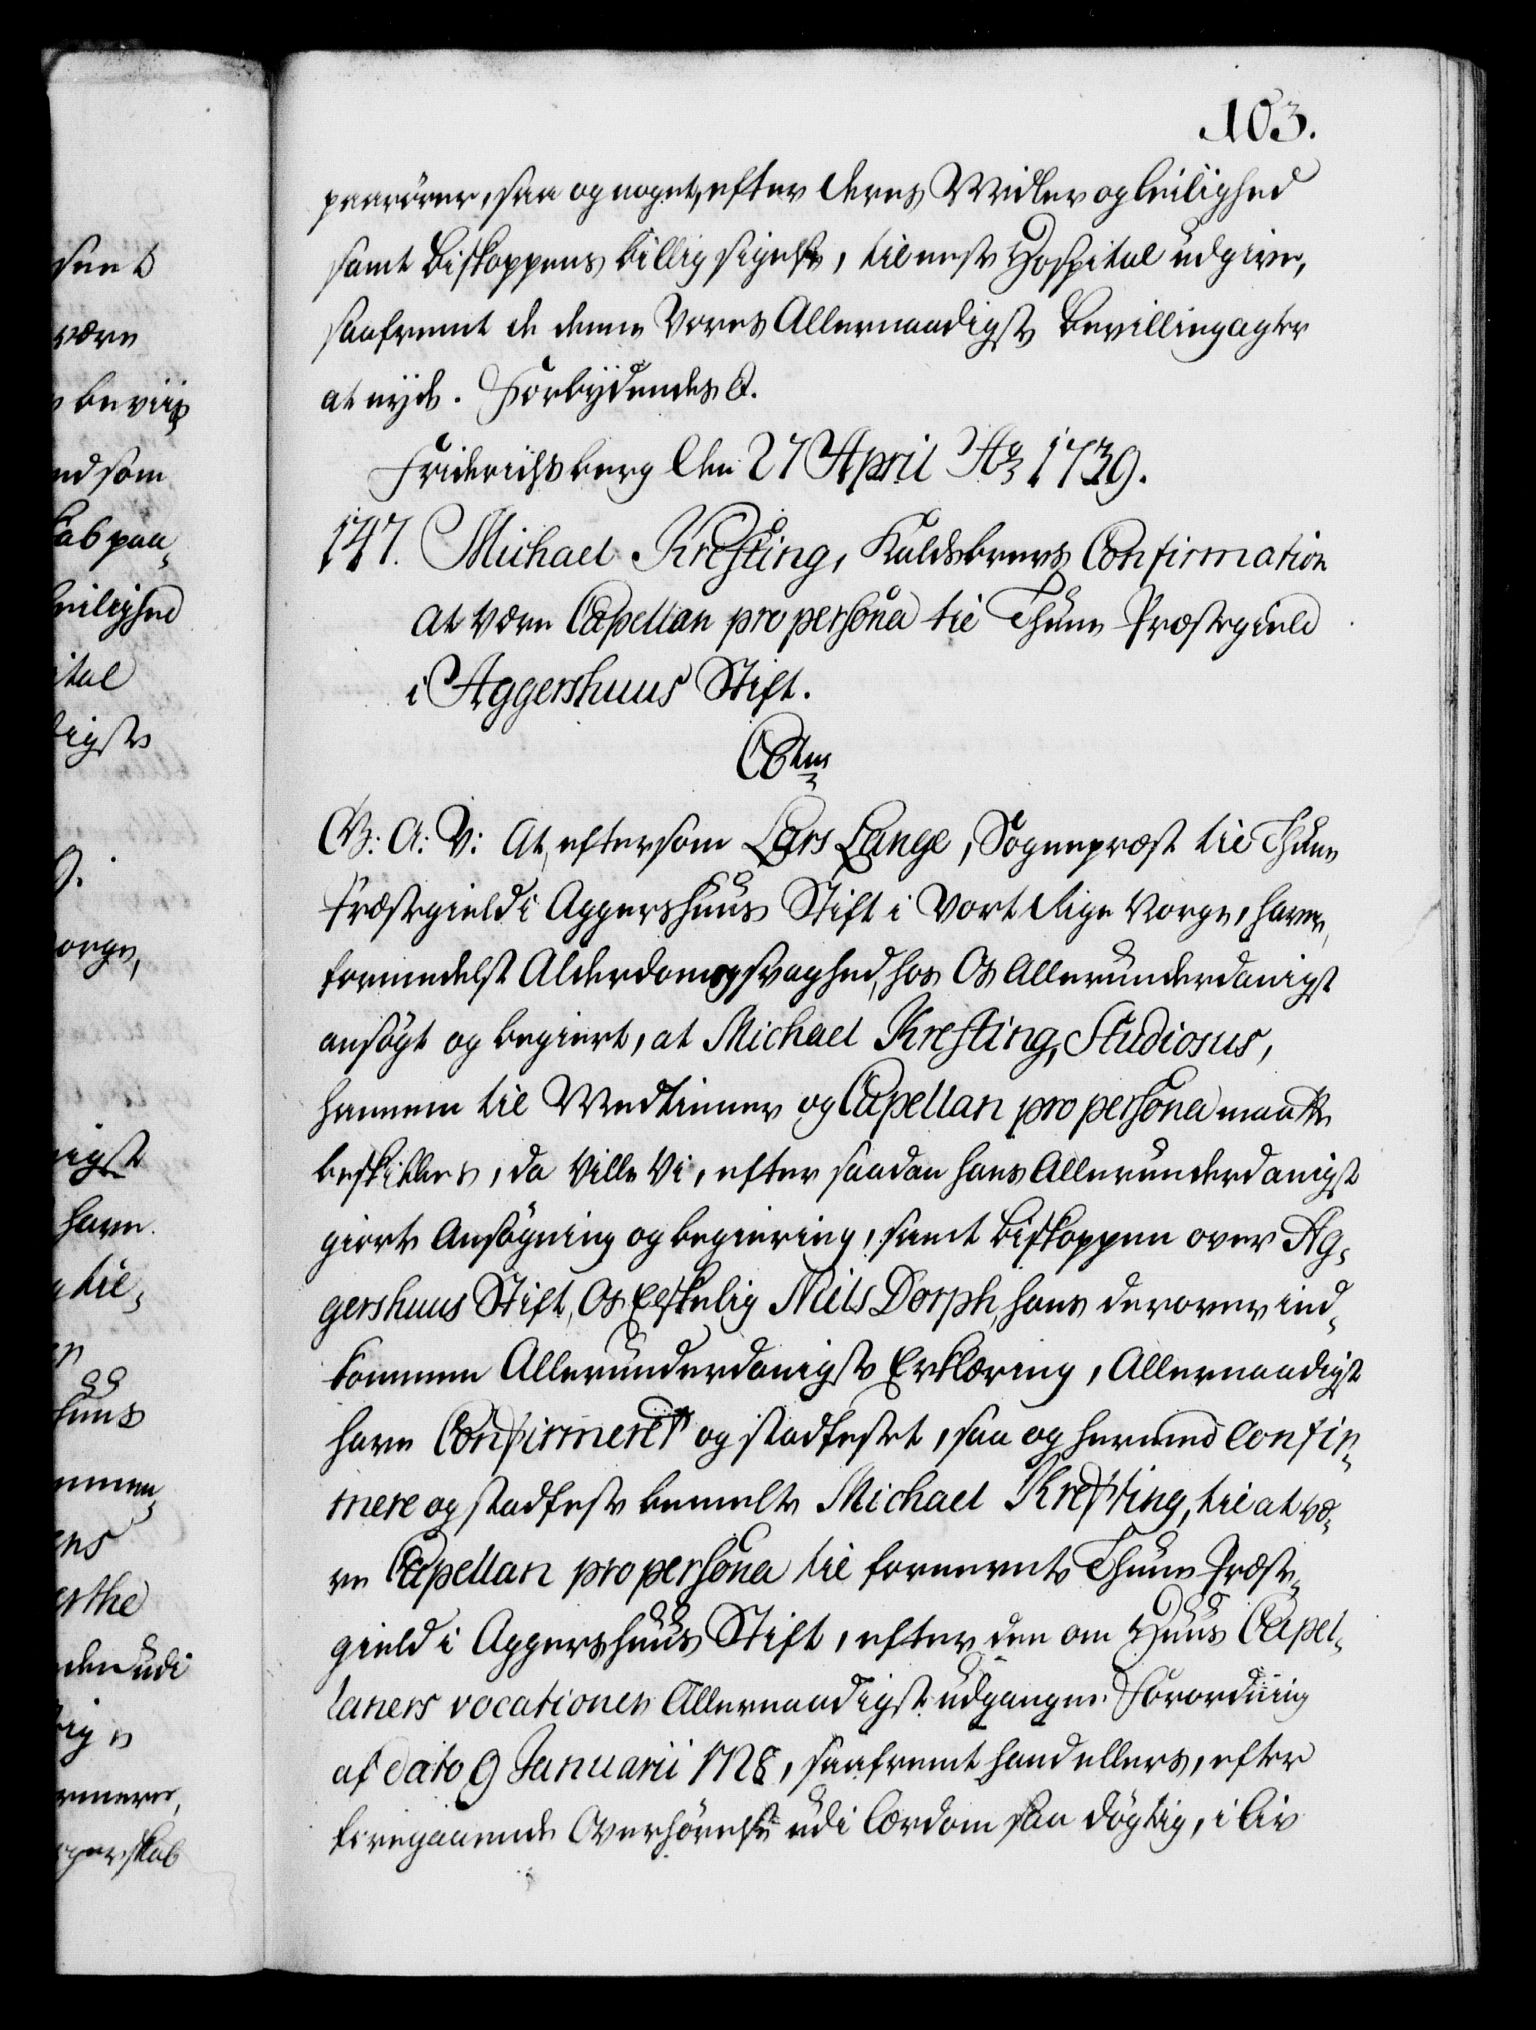 103.
paarörer, saa og noget, efter deres Midler og Leilighed
samt Biskoppens billig sigelse, til neste Hospital udgive,
saafremt de denne Vores Allernaadigste Bevilling agter
at nyde. Forbydendes &.
Friderichsberg den 27 April Ao 1739.
147. Michael Krefting, Kaldsbrevs Confirmation
at være Capellan pro persona til Thune Præstegield
i Aggershuus Stift.
C6tus
G: A: V: At, eftersom Lars Lange, Sognepræst til Thune
Præstegield i Aggershuus Stift i Vort Rige Norge, haver,
formedelst Alderdoms svaghed, hos Os Allerunderdanigst
ansögt og begiert, at Michael Krefting, Studiosus,
hannem til Medtiener og Capellan pro persona maatte
beskikkes, da Ville Vi, efter saadan hans Allerunderdanigst
giorte Ansögning og begiering, samt Biskoppen over Ag-
gershuus Stift, Os Elskelig Niels Dorph, hans derover ind-
kommne Allerunderdanigste Erklæring, Allernaadigst
have Confirmeret og stadfestet, saa og hermed Confir-
mere og stadfeste bemelte Michael Krefting, til at væ-
re Capellan pro persona til fornevnte Thune Præste-
gield i Aggershuus Stift, efter den om Huus Capel-
laners vocationer Allernaadigst udgangne Forordning
af dato 9 Januarii 1728, saafremt hand ellers, efter
foregaaende Overhörelse udi Lærdom saa dögtig, i Liv